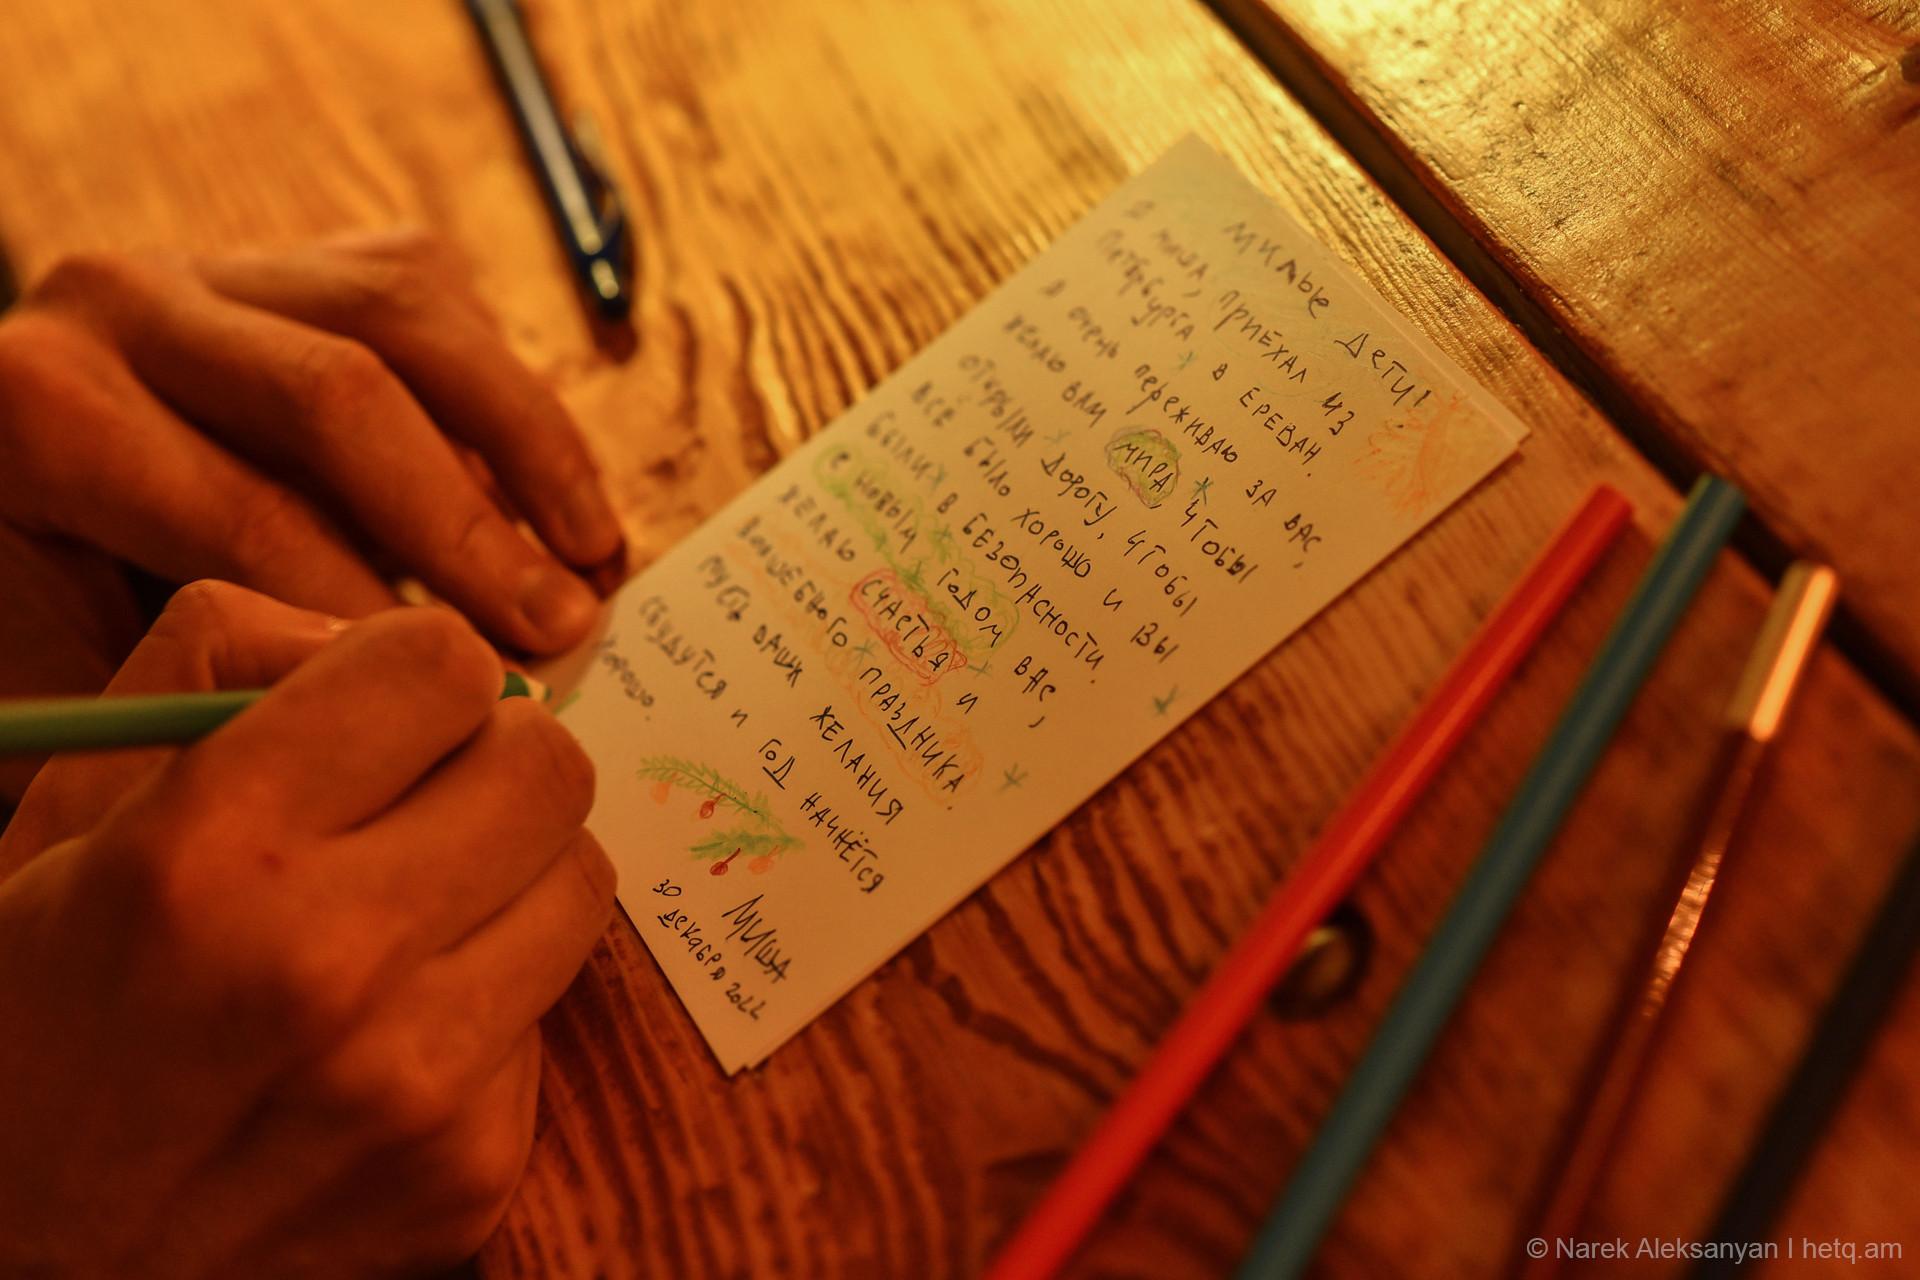 Милые дети!
Я Миша, приехал из
Петербурга в Ереван.
Я очень переживаю за вас,
желаю вам мира, чтобы
открыли дорогу, чтобы
всё было хорошо и вы
были в безопасности.
С новым годом вас,
желаю счастья и
волшебного праздника.
Пусть ваши желания
сбудутся и год начнётся
хорошо.
Миша
30 декабря 2022
© Narek Aleksanyan I hetq.am